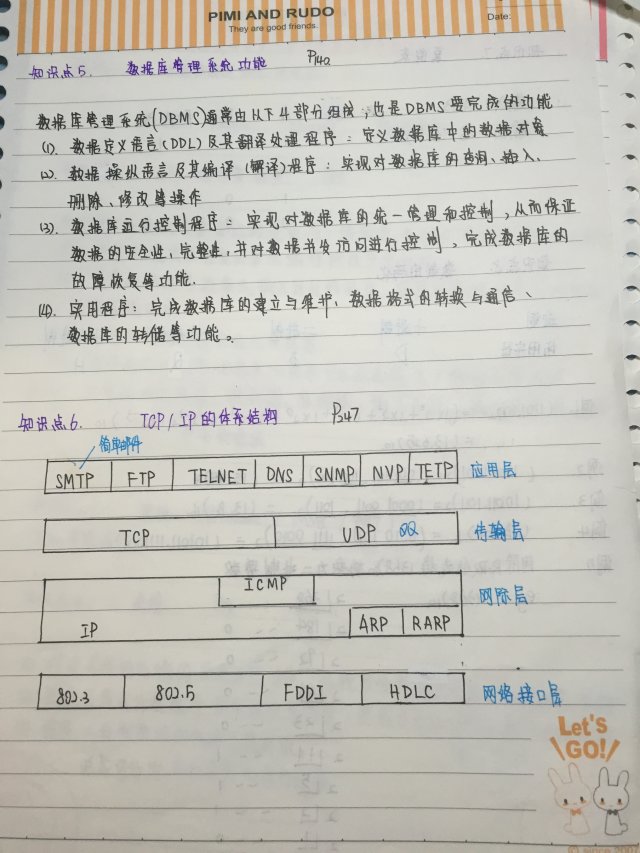 PIMI AND RUDO
They are good friends.
Date:
知识点5. 数据库管理系统功能 P140
数据库管理系统(DBMS)通常由以下4部分组成,也是DBMS要完成的功能
(1). 数据定义语言(DDL)及其翻译处理程序:定义数据库中的数据对象
(2). 数据操纵语言及其编译(解译)程序:实现对数据库的查询、插入、
删除、修改等操作
(3). 数据库运行控制程序:实现对数据库的统一管理和控制,从而保证
数据的安全性,完整性,并对数据并发访问进行控制,完成数据库的
故障恢复等功能.
(4). 实用程序:完成数据库的建立与维护、数据格式的转换与通信、
数据库的转储等功能。
知识点6. TCP/IP的体系结构 P247
简单邮件
SMTP FTP TELNET DNS SNMP NVP TETP 应用层
TCP UDP QQ 传输层
ICMP 网际层
IP ARP RARP
802.3 802.5 FDDI HDLC 网络接口层
Let's
GO!